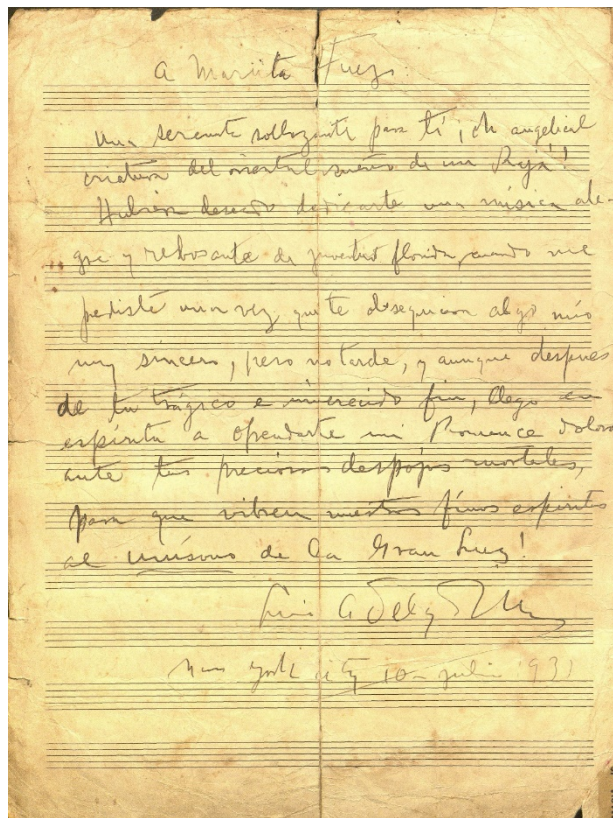 A Mariita Huezo.
Una serenata sollozante para tí, ¡oh angelical
criatura del oriental sueño de un Rajá!
Hubiera deseado dedicarte una música ale-
gre y rebosante de juventud florida, cuando me
pediste una vez, que te obsequiara algo mío
muy sincero, pero no tarde, y aunque despues
de tu trágico e inmerecido fin, llego en
espíritu a ofrendarte mi Romance doloro
ante tus preciosos despojos mortales,
para que vibren nuestros finos espíritus
al unísono de la Gran Luz!
Luis A Delg
New York City 10 julio 931